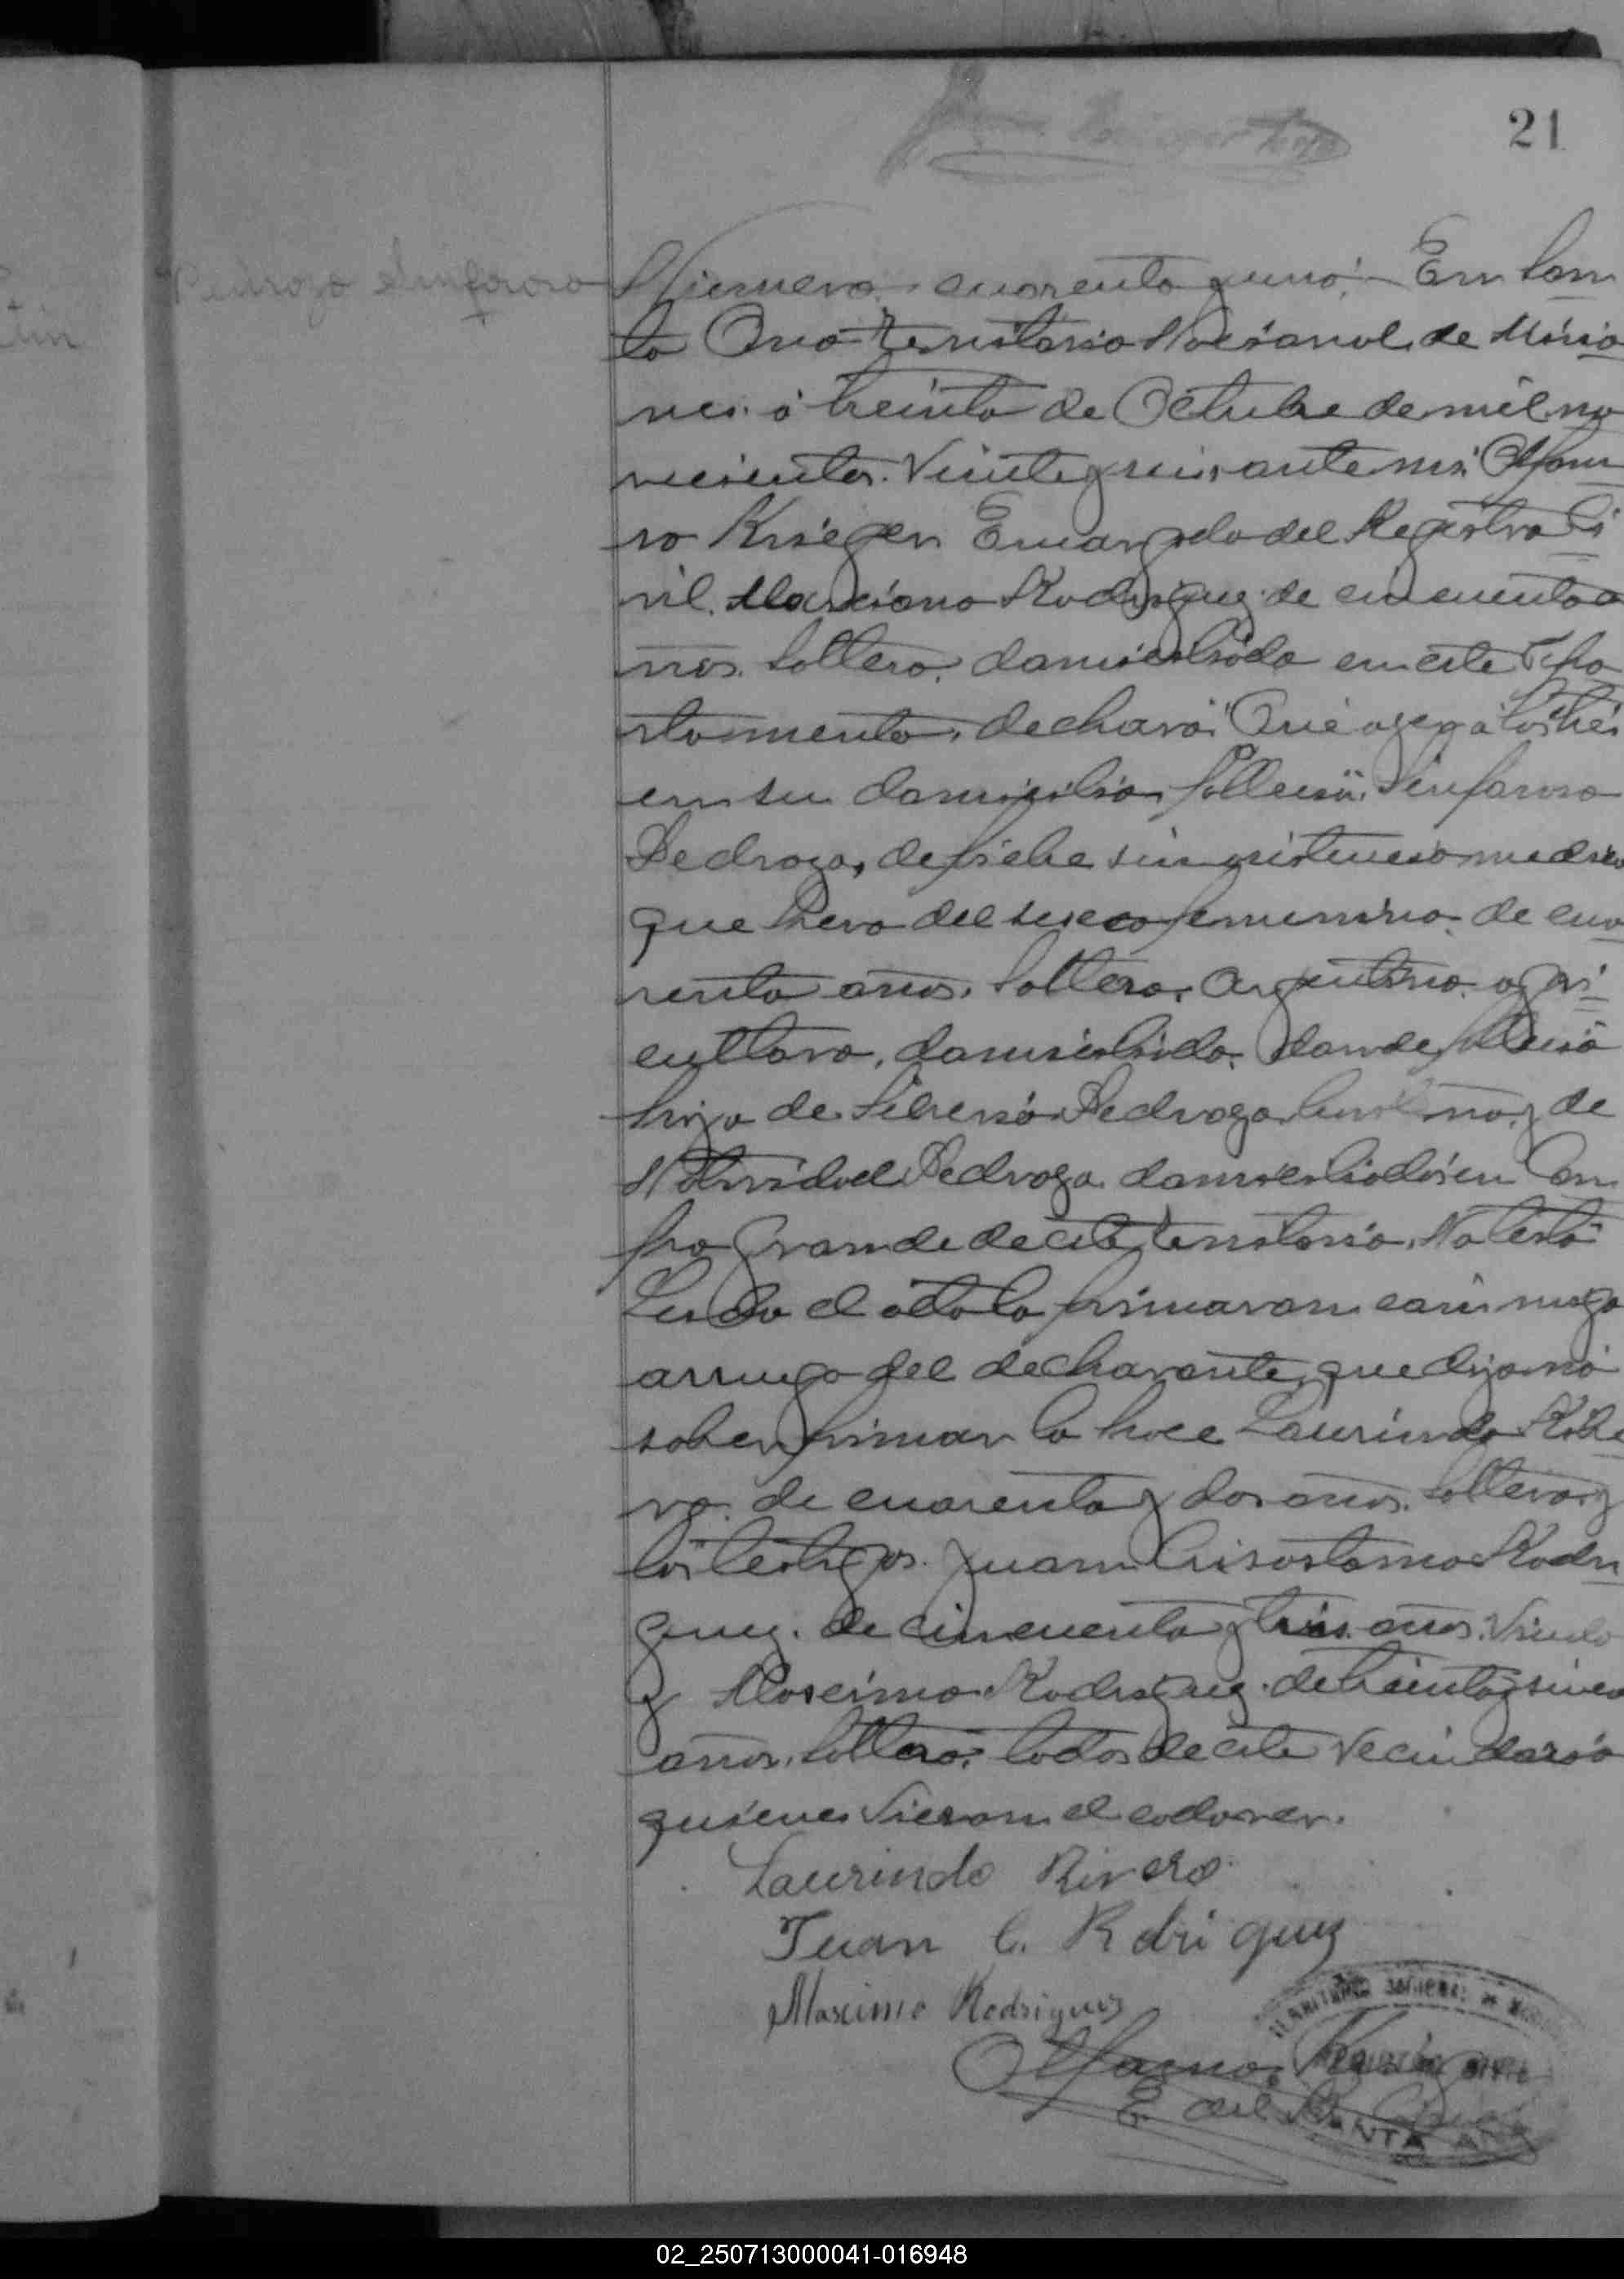 21
Pedrozo Sinforoso
Número cuarenta y uno. En San
ta Ana Territorio Nacional de Misio
nes. á treinta de Octubre de mil no
vecientos. Veinte y seis, ante mi
Krieger Encargado del Registro Ci
vil. Marciano Rodriguez de cincuenta a
ños. Soltero. domiciliado en este Depa
rtamento, decharó: Que ayer a las tres
en su domicilio, fallesió. Sinforosa
Pedrozo, de fiebre sin asistencia medica
que hera del sexo femenino. de cua
renta años. Soltera. Argentina. agri
cultora, domiciliada. donde fallesió
hija de Pedrozo y de
Natividad Pedrozo. domiciliados en Cam
po Grande de este territorio. No testó
Leida el acta la firmaron conmigo
a ruego del decharante, que dijo nó
saber firmar lo hace Laurindo Ribe
ro. de cuarenta y dos años. Soltero y
los testigos. Juan Crisostomo Rodri
guez. de cincuenta y tres. años. Viudo
y Maximo Rodriguez. de treinta y sinco
años. Soltero. todos de este Vecindario
quienes Vieron el cadaver.
Laurindo Rivero
Juan C. Rdriguez
Maximo Rodriguez
E del R. Civil
TERRITORIO NACIONAL DE MISIONES
REGISTRO CIVIL
SANTA ANA
02_250713000041-016948